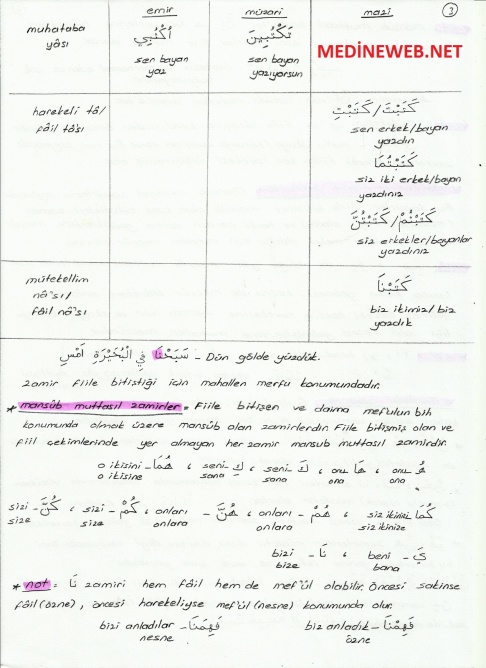 emir müzari mazi 3
MEDİNEWEB.NET
muhataba yâsı اُكْتُبِي تَكْتُبِينَ
sen bayan yaz sen bayan yazıyorsun
harekeli tâ/ fâil tâ'sı كَتَبْتَ/كَتَبْتِ
sen erkek/bayan yazdın
كَتَبْتُمَا
siz iki erkek/bayan yazdınız
كَتَبْتُمْ/كَتَبْتُنَّ
siz erkekler/bayanlar yazdınız
mütekellim nâ'sı/ fâil nâ'sı كَتَبْنَا
biz ikimiz/biz yazdık
سَبَحْنَا فِي الْبُحَيْرَةِ اَمْسِ - Dün gölde yüzdük.
zamir fiile bitiştiği için mahallen merfu konumundadır.
* mansûb muttasıl zamirler = Fiile bitişen ve daima mef'ulun bih
konumunda olmak üzere mansûb olan zamirlerdir. Fiile bitişmiş olan ve
fiil çekimlerinde yer almayan her zamir mansub muttasıl zamirdir.
هُ - onu ona ، هَا - onu ona ، كَ - seni sana ، كِ - seni sana ، هُمَا - o ikisini o ikisine
كُمَا - siz ikinizi siz ikinize ، هُمْ - onları onlara ، هُنَّ - onları onlara ، كُمْ - sizi size ، كُنَّ - sizi size
ي - beni bana ، نَا - bizi bize
* not = نَا zamiri hem fâil hem de mef'ûl olabilir. Öncesi sakinse
fâil (özne), öncesi harekeliyse mef'ûl (nesne) konumunda olur.
فَهِمْنَا - biz anladık özne فَهِمَنَا - bizi anladılar nesne